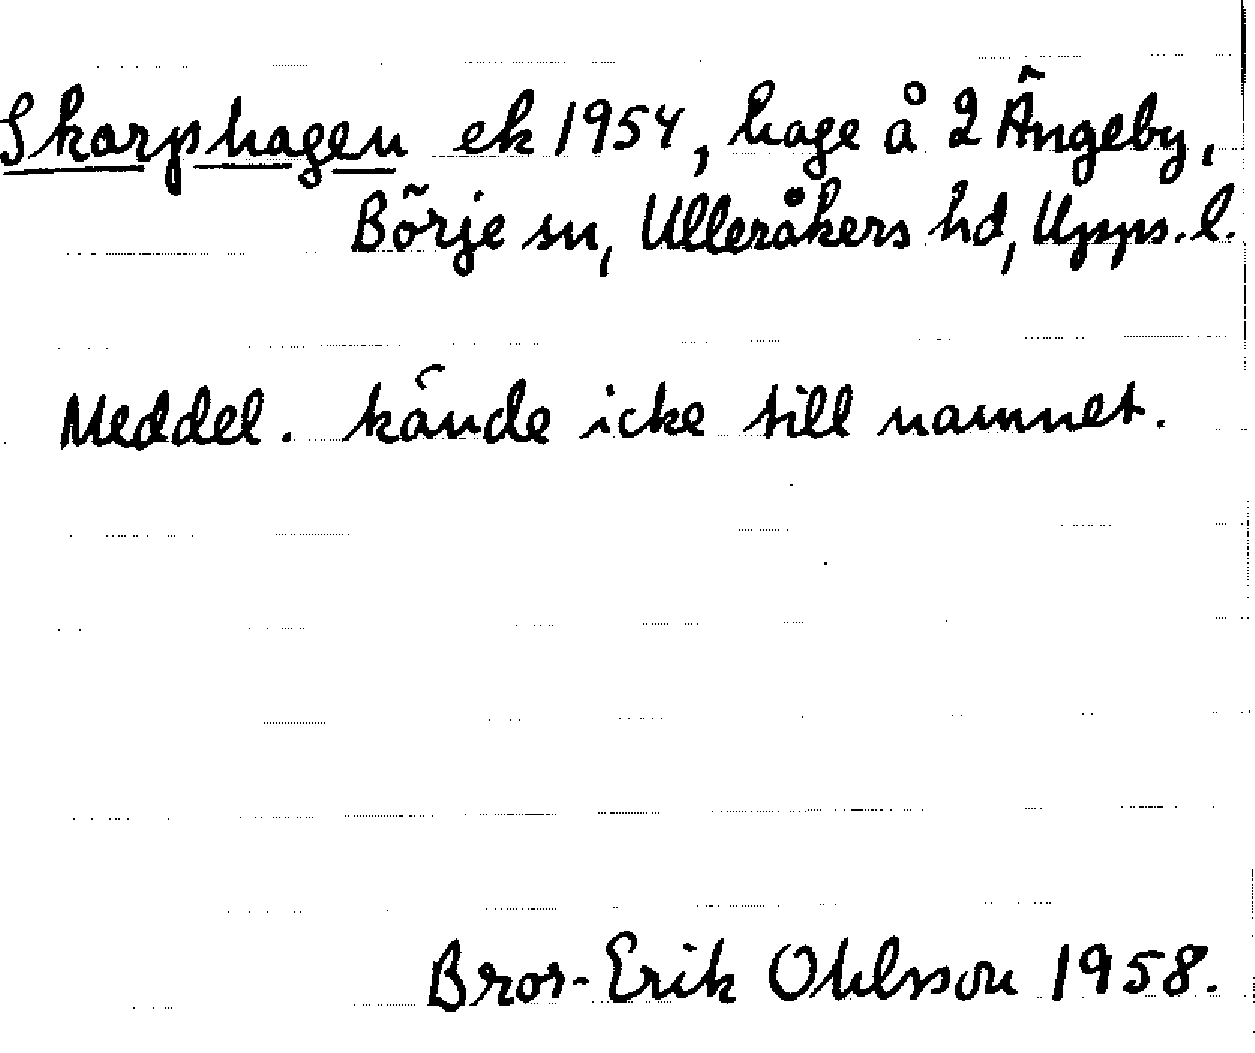 Skarphagen ek 1954, hage å 2 Ängeby,
Börje sn, Ulleråkers hd, Upps. l.
Meddel. kände icke till namnet.
Bror-Erik Ohlsson 1958.